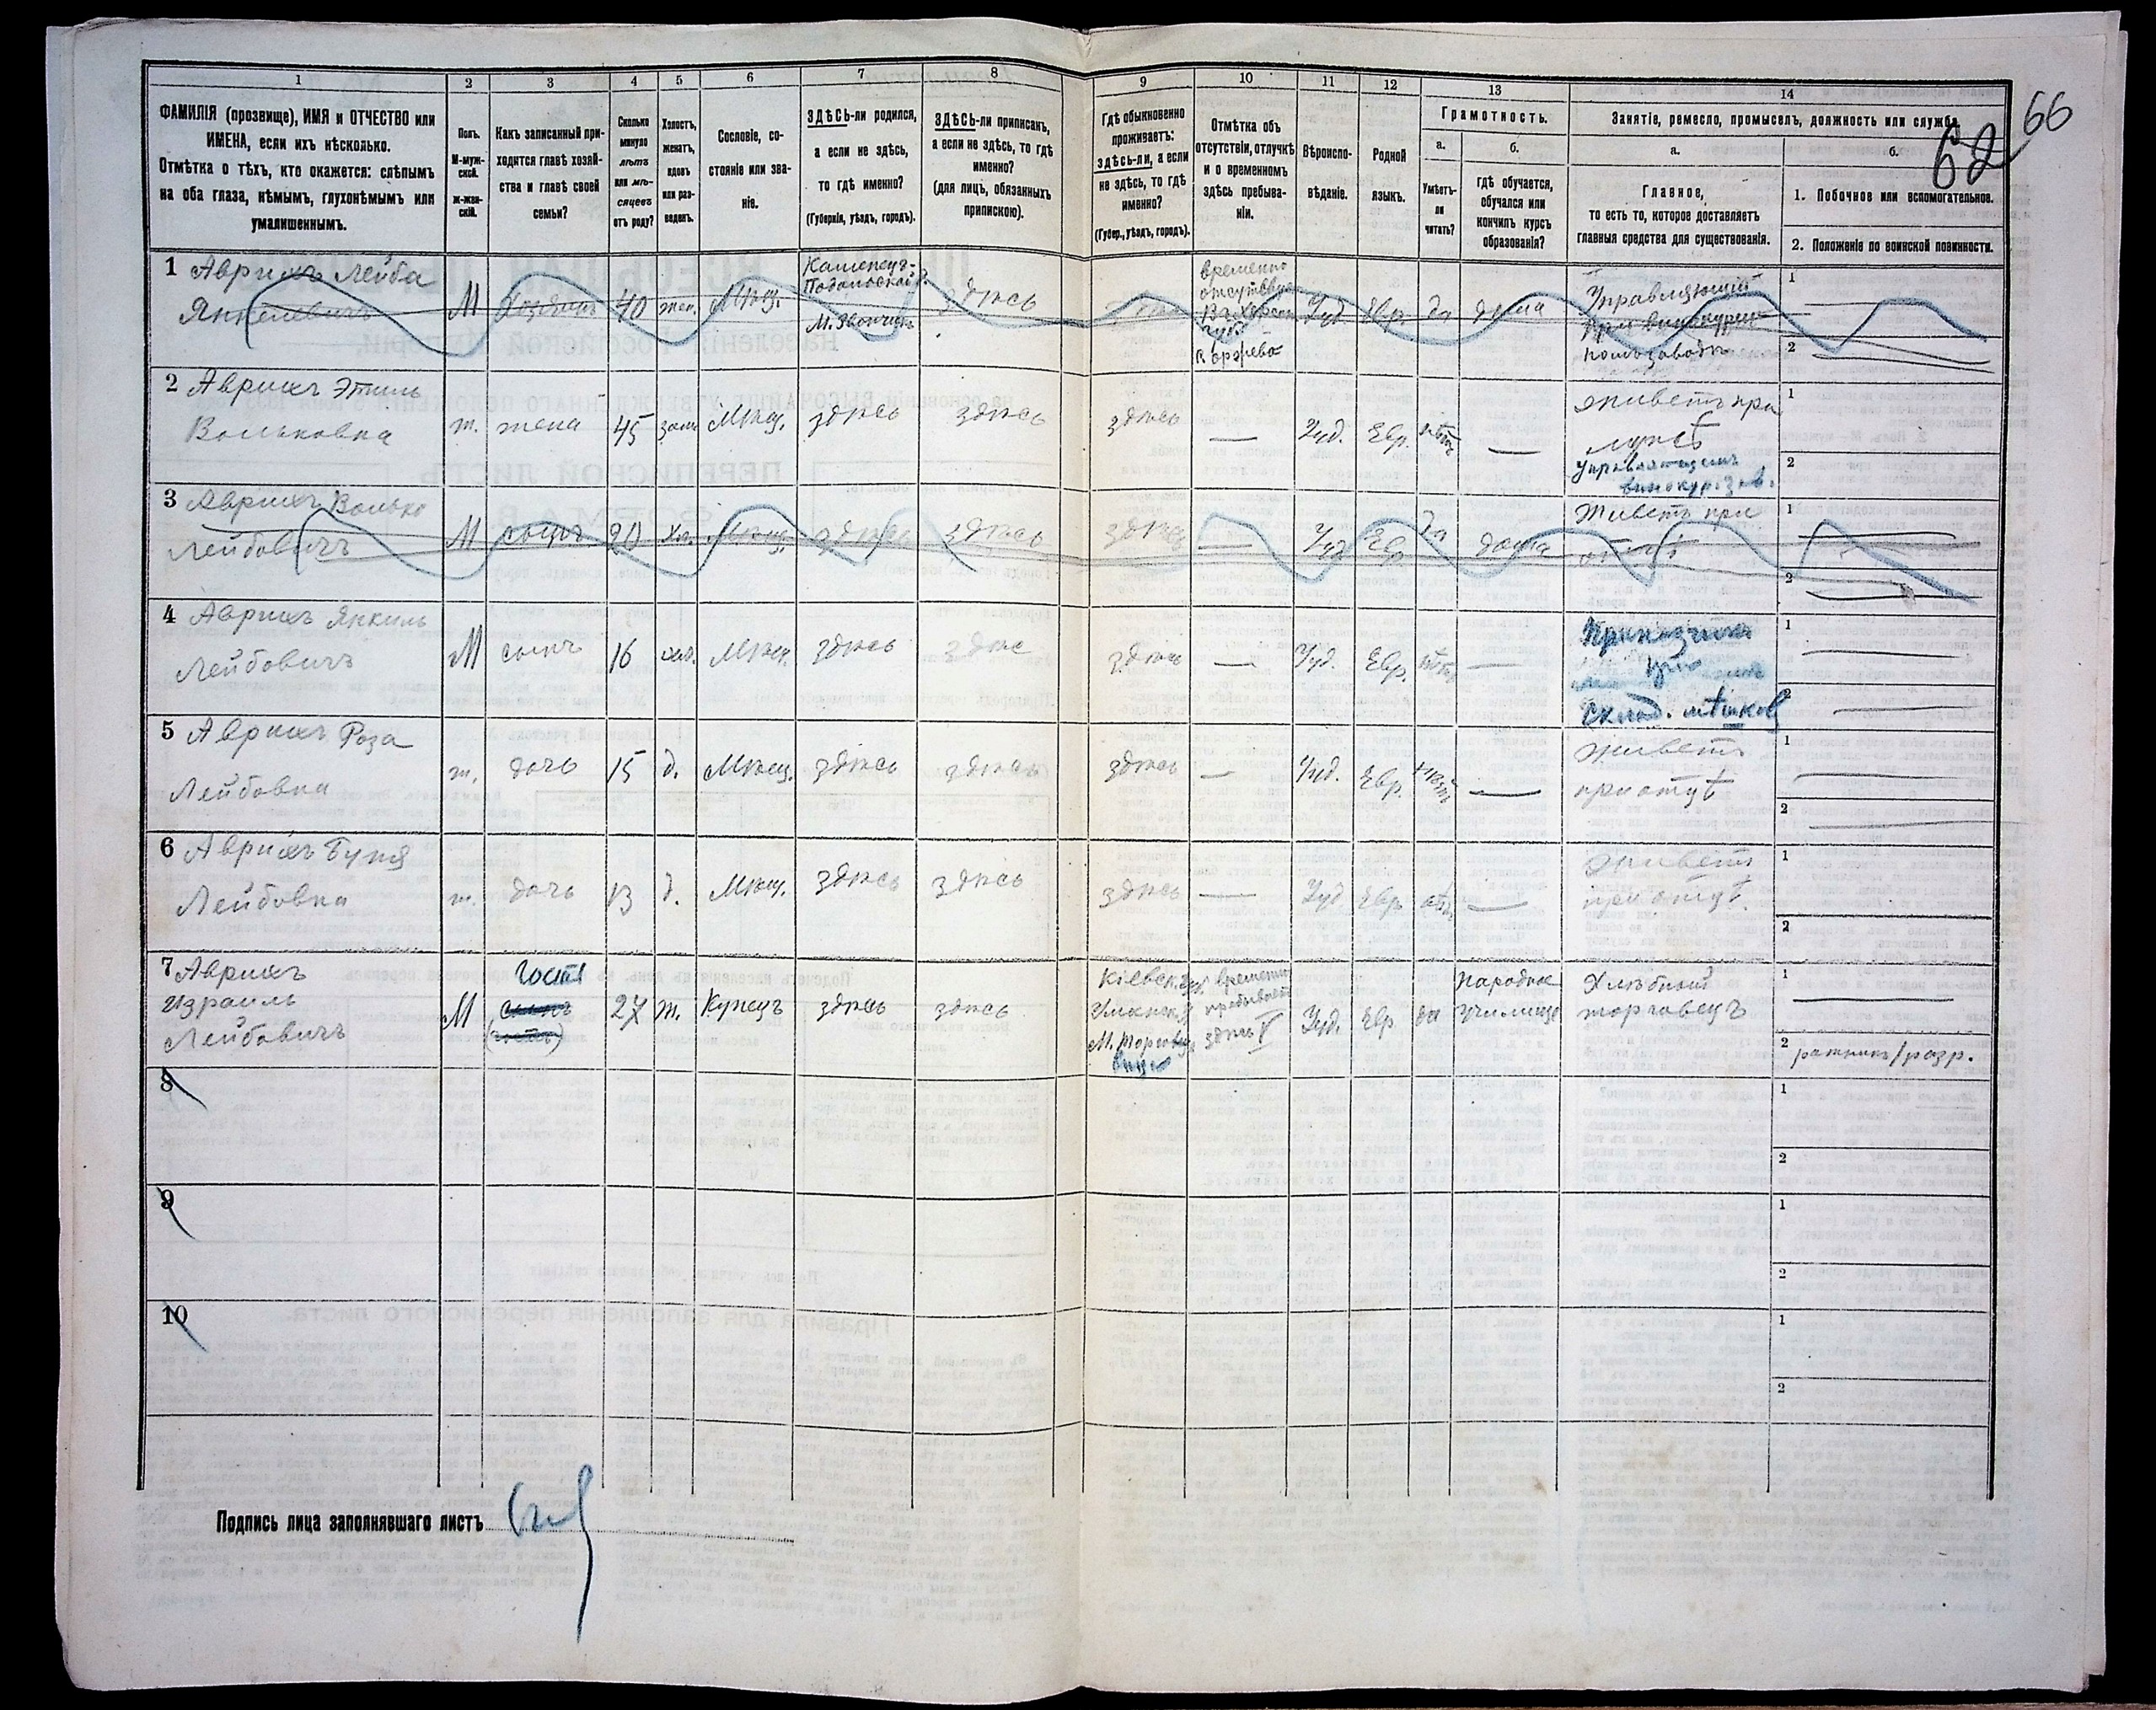 66
62
1
2
3
4
5
6
7
8
9
10
11
12
13
14
ФАМИЛІЯ (прозвище), ИМЯ и ОТЧЕСТВО или
ИМЕНА, если ихъ нѣсколько.
Отмѣтка о тѣхъ, кто окажется: слѣпымъ
на оба глаза, нѣмымъ, глухонѣмымъ или
умалишеннымъ.
Полъ.
М-муж-
ской.
ж-жен-
скій.
Какъ записанный при-
ходится главѣ хозяй-
ства и главѣ своей
семьи?
Сколько
минуло
лѣтъ
или мѣ-
сяцевъ
отъ роду?
Холостъ,
женатъ,
вдовъ
или раз-
веденъ.
Сословіе, со-
стояніе или зва-
ніе.
ЗДѢСЬ-ли родился,
а если не здѣсь,
то гдѣ именно?
(Губернія, уѣздъ, городъ).
ЗДѢСЬ-ли приписанъ,
а если не здѣсь, то гдѣ
именно?
(для лицъ, обязанныхъ
припискою).
Гдѣ обыкновенно
проживаетъ:
здѣсь-ли, а если
не здѣсь, то гдѣ
именно?
(Губер., уѣздъ, городъ).
Отмѣтка объ
отсутствіи, отлучкѣ
и о временномъ
здѣсь пребыва-
ніи.
Вѣроиспо-
вѣданіе.
Родной
языкъ.
Грамотность.
а.
Умѣетъ-
ли
читать?
б.
гдѣ обучается,
обучался или
кончилъ курсъ
образованія?
Занятіе, ремесло, промыселъ, должность или служба.
а.
Главное,
то есть то, которое доставляетъ
главныя средства для существованія.
б.
1. Побочное или вспомогательное.
2. Положеніе по воинской повинности.
1 Аврихъ Лейба
Янкелевичъ
М
Хозяинъ
40
жен.
Мѣщ.
Каменецъ-
М. Званчикъ
здѣсь
временно
Іуд.
Евр.
да
дома
Управляющій
1
2
2 Аврихъ Этиль
Вольковна
ж.
жена
45
зам.
Мѣщ.
здѣсь
здѣсь
здѣсь
—
Іуд.
Евр.
нѣтъ
—
живетъ при
мужѣ
управляющемъ
винокур. зав.
1
2
3 Аврихъ Волько
Лейбовичъ
М
сынъ
20
Хол.
Мѣщ.
здѣсь
здѣсь
здѣсь
—
Іуд.
Евр.
да
дома
Живетъ при
отцѣ
1
2
4 Аврихъ Янкиль
Лейбовичъ
М
сынъ
16
хол.
Мѣщ.
здѣсь
здѣс
здѣсь
—
Іуд.
Евр.
нѣтъ
—
Приказчикъ
при
склад. мѣшков
1
2
5 Аврихъ Роза
Лейбовна
ж.
дочь
15
д.
Мѣщ.
здѣсь
здѣсь
здѣсь
—
Іуд.
Евр.
нѣтъ
—
живетъ
при отцѣ
1
2
6 Аврихъ Буня
Лейбовна
ж.
дочь
13
д.
Мѣщ.
здѣсь
здѣсь
здѣсь
—
Іуд
Евр
нѣтъ
—
живетъ
при отцѣ.
1
2
7 Аврихъ
Израиль
Лейбовичъ
М
гость
сынъ
(гость)
27
ж.
Купецъ
здѣсь
здѣсь
Кіевск. губ.
М. Торгов
временно
пребывает
здѣсь
Іуд.
Евр
да
Народное
училище
Хлѣбный
торговецъ
1
2 ратникъ 1 разр.
8
1
2
9
1
2
10
1
2
Подпись лица заполнявшаго листъ